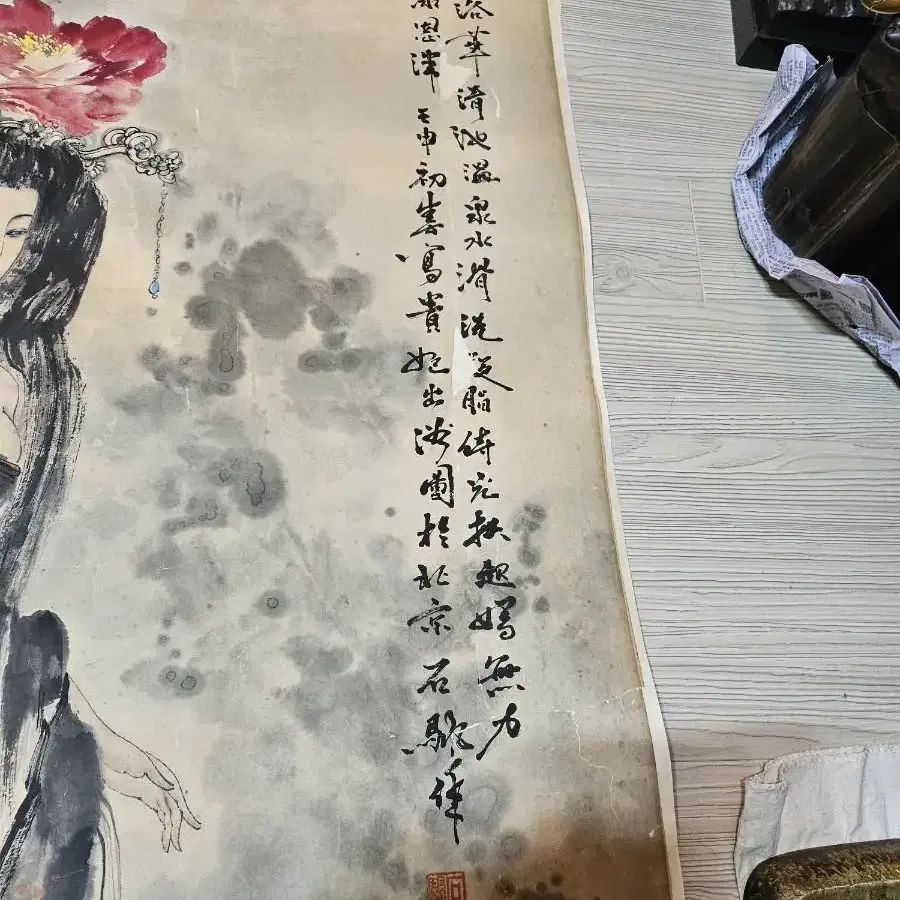 浴華清池溫泉水滑洗凝脂侍兒扶起嬌無力
恩澤壬申初春寫貴妃出浴圖於北京石
石